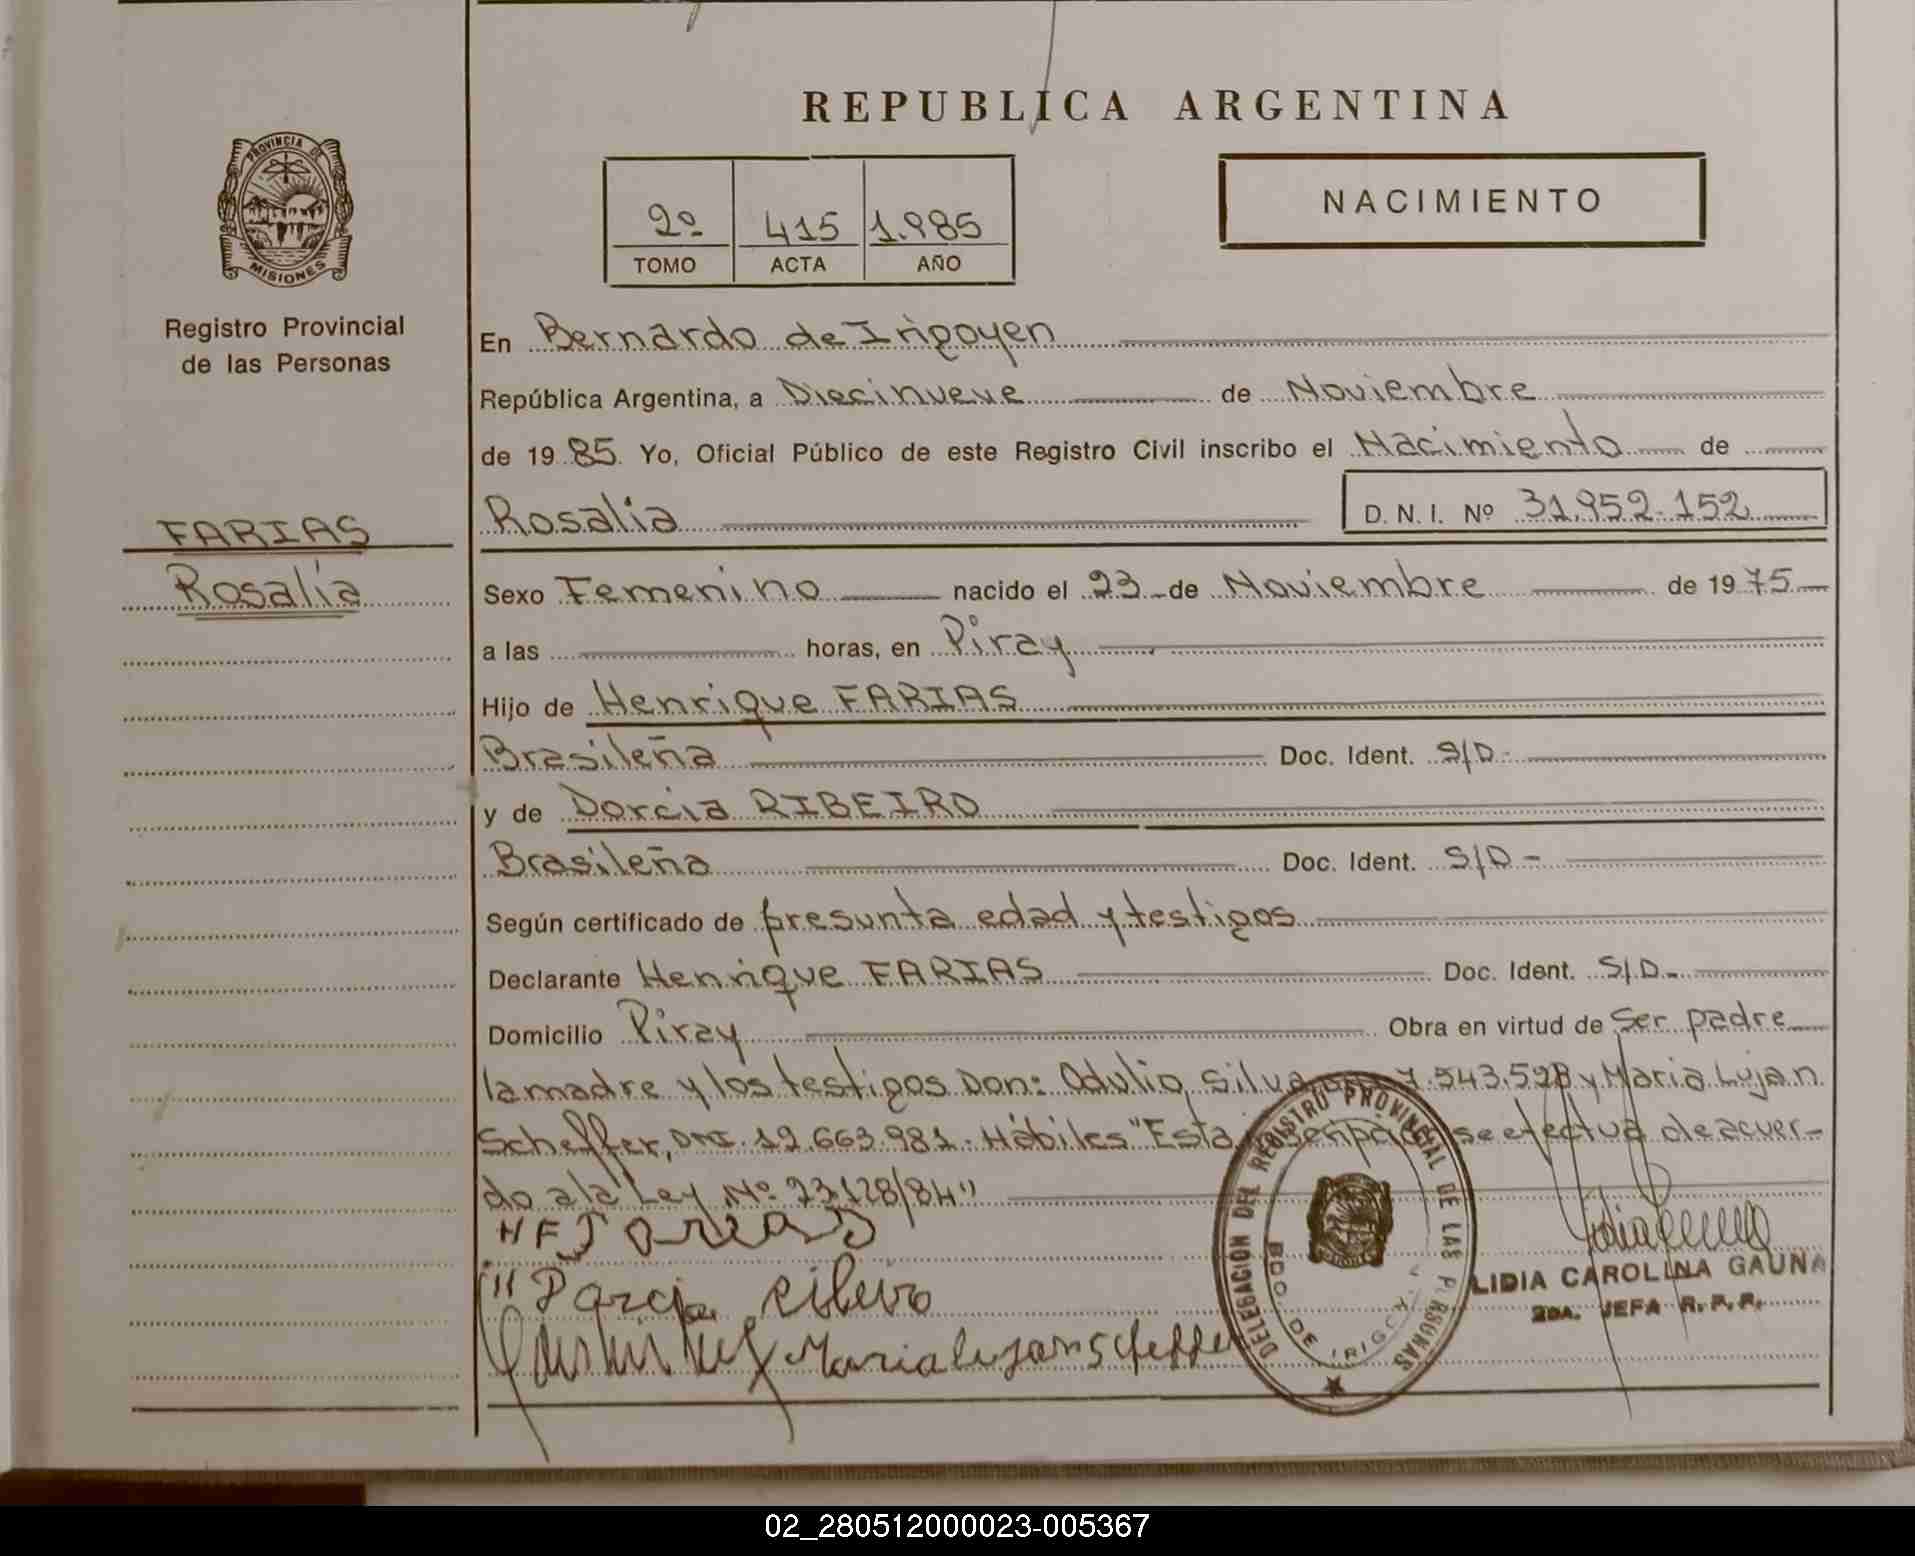 REPUBLICA ARGENTINA
PROVINCIA DE MISIONES
Registro Provincial
de las Personas
2º 415 1.985
TOMO ACTA AÑO
NACIMIENTO
FARIAS
Rosalía
En Bernardo de Irigoyen
República Argentina, a Diecinueve de Noviembre
de 19 85 Yo, Oficial Público de este Registro Civil inscribo el Nacimiento de
Rosalía D. N. I. Nº 31.952.152
Sexo Femenino nacido el 23 de Noviembre de 19 75
a las horas, en Piray
Hijo de Henrique FARIAS
Brasileña Doc. Ident. S/D.
y de Dorcia RIBEIRO
Brasileña Doc. Ident. S/D
Según certificado de presunta edad y testigos
Declarante Henrique FARIAS Doc. Ident. S/D.
Domicilio Piray Obra en virtud de Ser padre
la madre y los testigos Don: Odulio Silva 7.543.528 y Maria Lujan
Scheffer, DNI. 12.663.981. Hábiles "Esta se efectua de acuer-
do a la Ley Nº 23.128/84"
HF Farias
Ribeiro
Maria Lujan Scheffer
DELEGACION DEL REGISTRO PROVINCIAL DE LAS PERSONAS
BDO. DE IRIGOYEN
LIDIA CAROLINA GAUNA
2DA. JEFA R. P. P.
02_280512000023-005367